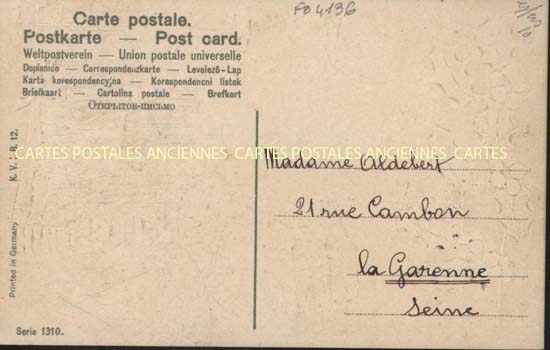 FO 4136
Carte postale.
Postkarte — Post card.
Weltpostverein — Union postale universelle
Dopisnice — Correspondenzkarte — Levelező-Lap
Karta korespondencyjna — Korespondencni listek
Briefkaart — Cartolina postale — Brefkort
Открытое-письмо
CARTES POSTALES ANCIENNES CARTES POSTALES ANCIENNES CARTES
Madame Aldebert
21 rue Cambon
la Garenne
Seine
Printed in Germany
K. V. B. 12.
Serie 1310.